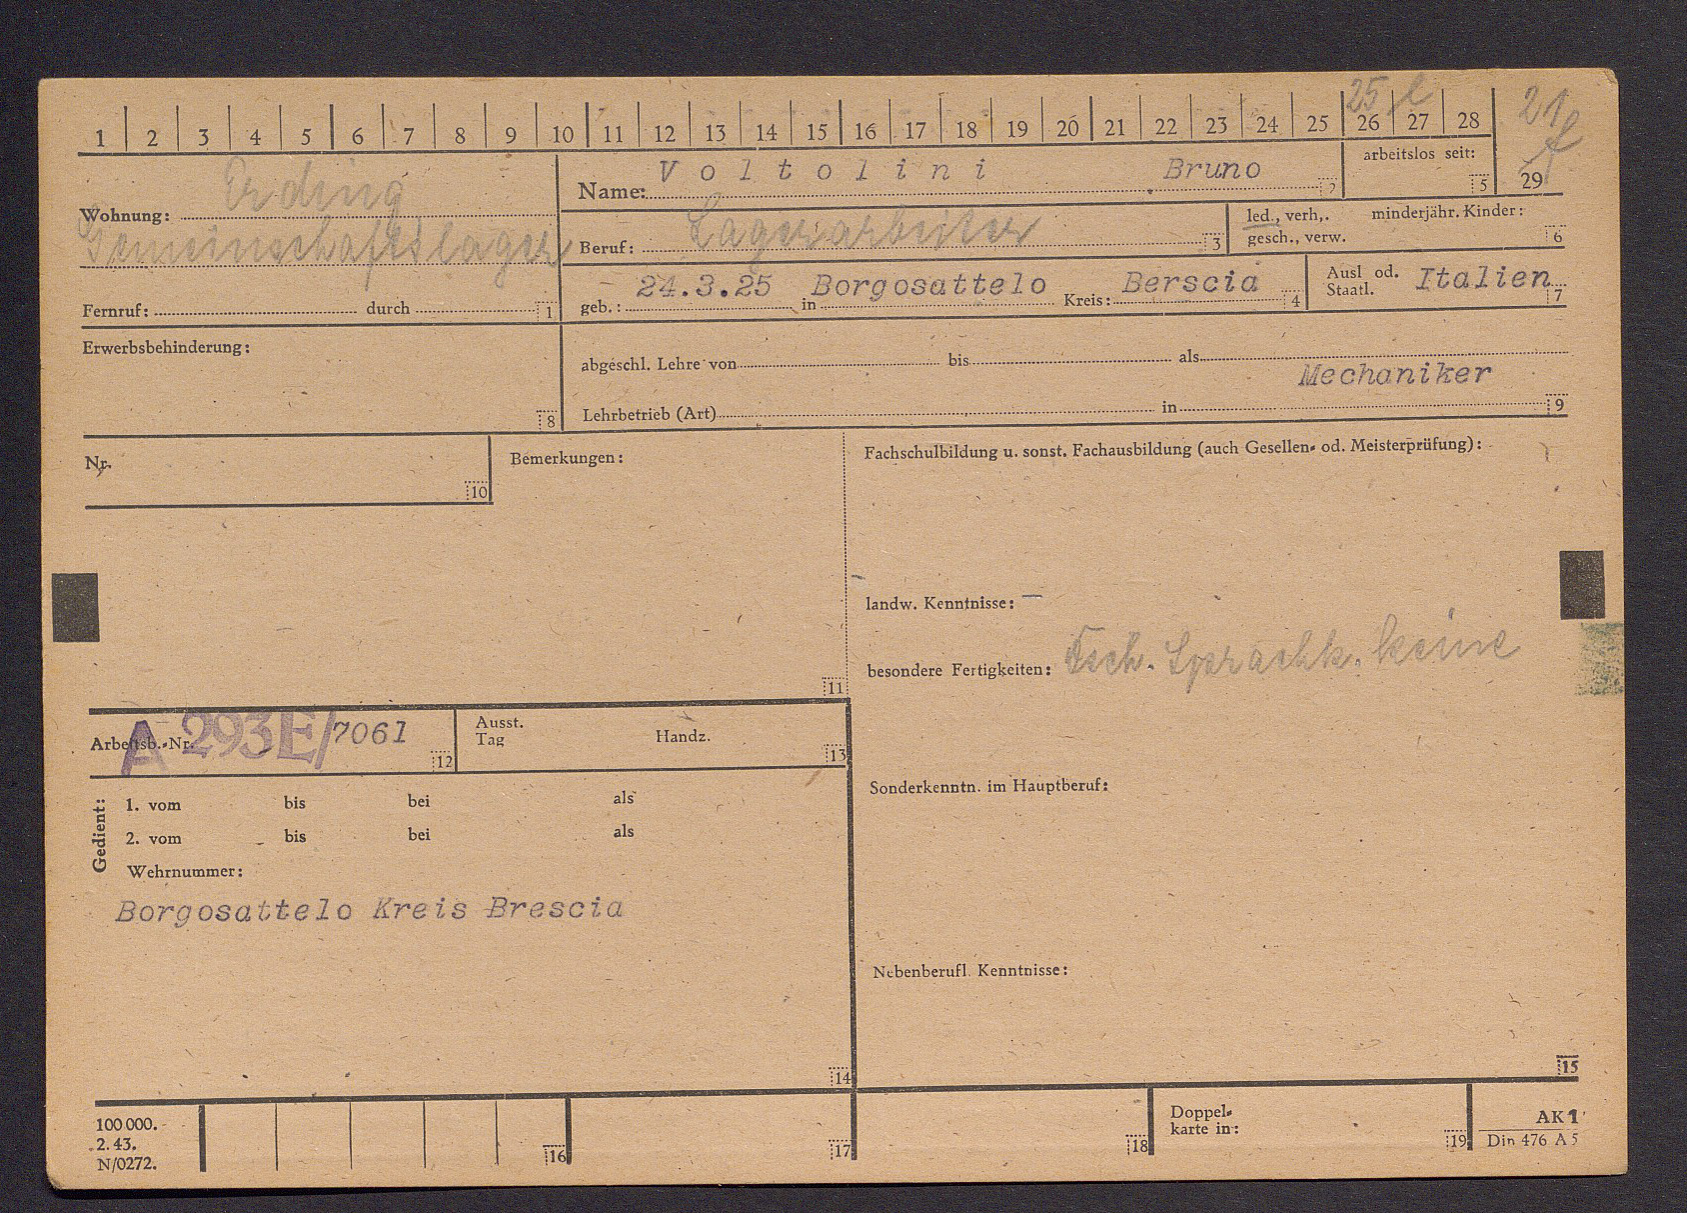 1 2 3 4 5 6 7 8 9 10 11 12 13 14 15 16 17 18 19 20 21 22 23 24 25 26 27 28 29
25
21
Wohnung: Erding
Gemeinschaftslager
Fernruf: durch 1
Name: Voltolini Bruno 2
arbeitslos seit: 5
Beruf: Lagerarbeiter 3
led., verh,. minderjähr. Kinder:
gesch., verw. 6
geb.: 24.3.25 in Borgosattelo Kreis: Berscia 4
Ausl od.
Staatl. Italien 7
Erwerbsbehinderung: 8
abgeschl. Lehre von bis als
Mechaniker
Lehrbetrieb (Art) in 9
Nr. 10
Bemerkungen: 11
Fachschulbildung u. sonst. Fachausbildung (auch Gesellen- od. Meisterprüfung):
landw. Kenntnisse: —
besondere Fertigkeiten: Dsch. Sprachk. keine
Sonderkenntn. im Hauptberuf:
Nebenberufl. Kenntnisse:
15
Arbeitsb.-Nr. A 293E/7061 12
Ausst.
Tag Handz. 13
Gedient:
1. vom bis bei als
2. vom bis bei als
Wehrnummer:
Borgosattelo Kreis Brescia
14
100 000.
2. 43.
N/0272.
16 17 18
Doppel-
karte in: 19
AK 1
Din 476 A 5